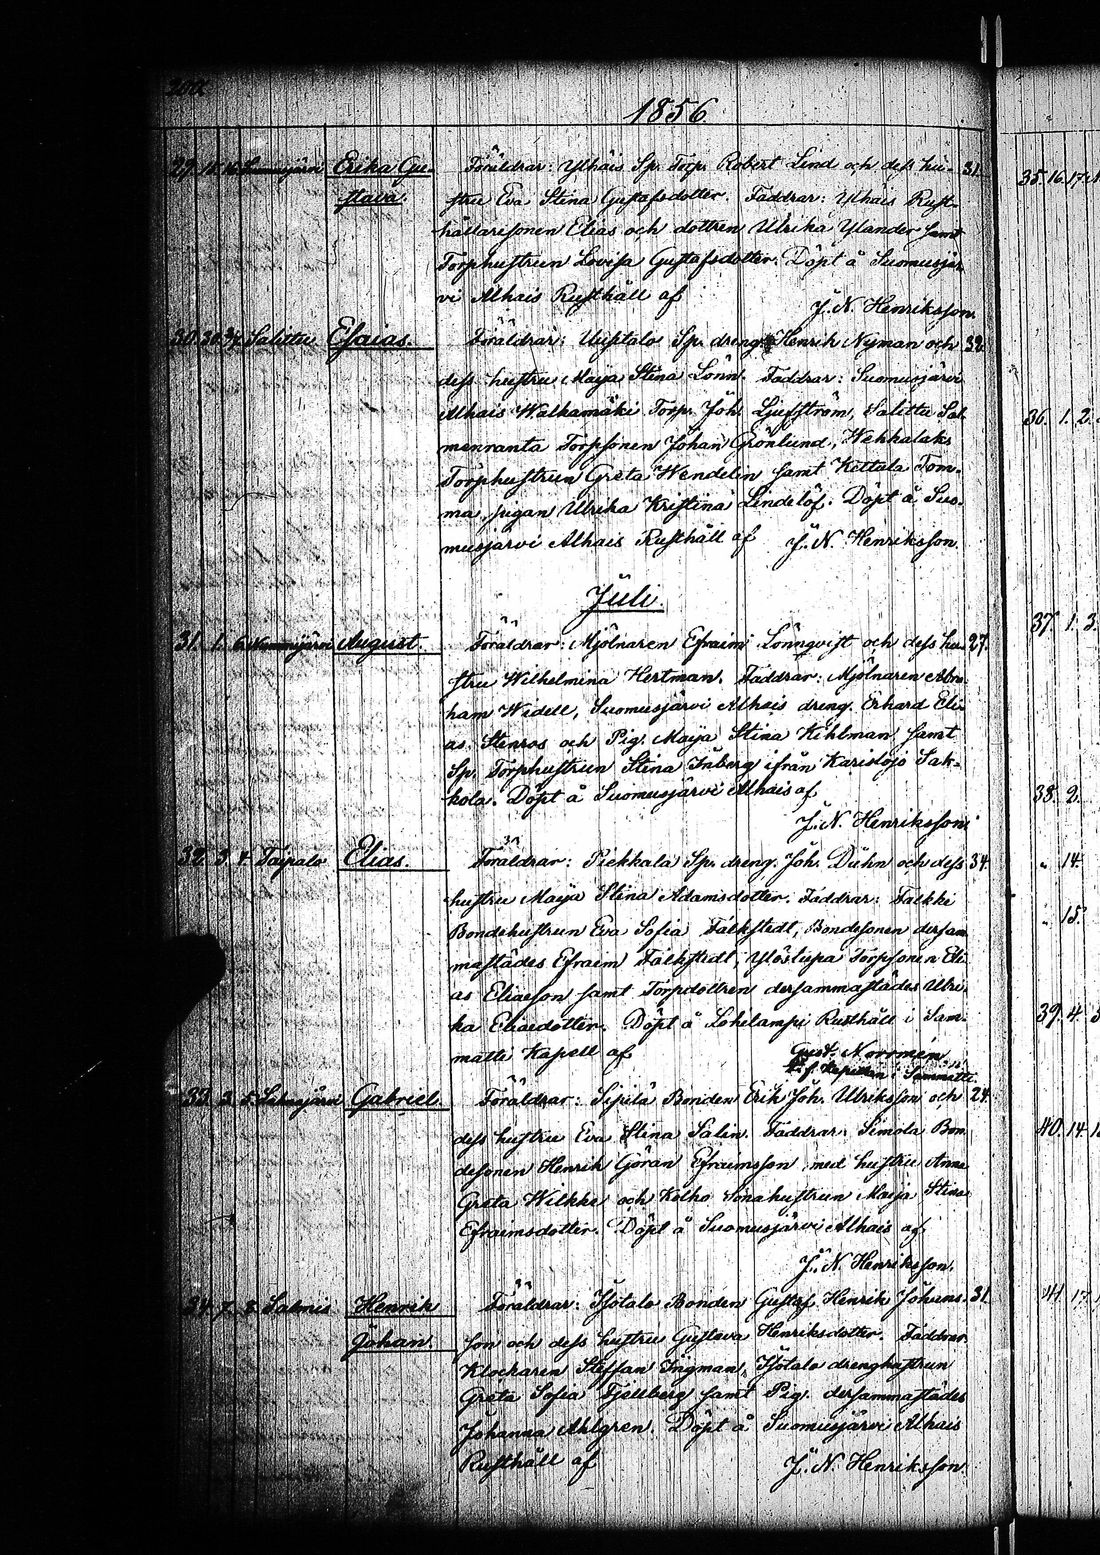 1856.
29. 15. 16. Erika Gu- Föräldrar: Ylhäis Sp. Torp. Robert Lind och dess hu- 31.
stava. stru Eva Stina Gustafsdotter. Faddrar: Ylhäis Rust-
hållaresonen Elias och dottren Ulrika Ylander samt
Torphustrun Lovisa Gustafsdotter. Döpt å Suomusjär-
vi Alhais Rusthåll af
J. N. Henriksson.
30. 30. Salittu Esaias. Föräldrar: Sp. dreng. Henrik Nyman och 32.
dess hustru Maja Stina Lönn. Faddrar: Suomusjärvi
Alhais Walkamäki Torp. Joh. Salittu Sal-
menranta Torpsonen Johan Grönlund, Wehkalaks
Torphustrun Greta Wendelin samt Kettala Tom-
ma pigan Ulrika Kristina Lindelöf. Döpt å Suo-
musjärvi Alhais Rusthåll af J. N. Henriksson.
Juli.
31. 1. 6. August. Föräldrar: Mjölnaren Efraim Lönnqvist och dess hu- 27.
stru Wilhelmina Hertman. Faddrar: Mjölnaren Abra-
ham Widell, Suomusjärvi Alhais dreng. Erhard Eli-
as Stenros och Pig. Maija Stina Kihlman samt
Sp. Torphustrun Stina Inberg ifrån Karislojo Sak-
kola. Döpt å Suomusjärvi Alhais af
J. N. Henriksson.
32. 3. 4. Taipalo Elias. Föräldrar: Piekkala Sp. dreng. Joh. Duhn och dess 34.
hustru Maija Stina Adamsdotter. Faddrar: Falkki
Bondehustrun Eva Sofia Falkstedt, Bondesonen dersam-
mastädes Efraim Falkstedt, Torpsonen Eli-
as Eliasson samt Torpdottren dersammastädes Ulri-
ka Eliaedotter. Döpt å Lohelampi Rusthåll i Sam-
matti Kapell af Gust. Norrmén
Kapellan i Sammatti.
33. 3. 5. Gabriel Föräldrar: Sipilä Bonden Erik Joh. Ulriksson och 24.
dess hustru Eva Stina Salin. Faddrar: Simola Bon-
desonen Henrik Göran Efraimsson med hustru Anna
Greta Wilkki och Kolho Sonahustrun Maija Stina
Efraimsdotter. Döpt å Suomusjärvi Alhais af
J. N. Henriksson.
34. 7. 8. Laknis Henrik Föräldrar: Isotalo Bonden Gustaf Henrik Johans- 31.
Johan. son och dess hustru Gustava Henriksdotter. Faddrar:
Klockaren Steffan Ingman, Isotalo drenghustrun
Greta Sofia Fjellberg samt Pig. dersammastädes
Johanna Ahlgren. Döpt å Suomusjärvi Alhais
Rusthåll af J. N. Henriksson.
35. 16. 17.
36. 1. 2.
37. 1. 3.
38. 2.
" 14.
" 15.
39. 4.
40. 14.
41. 17.